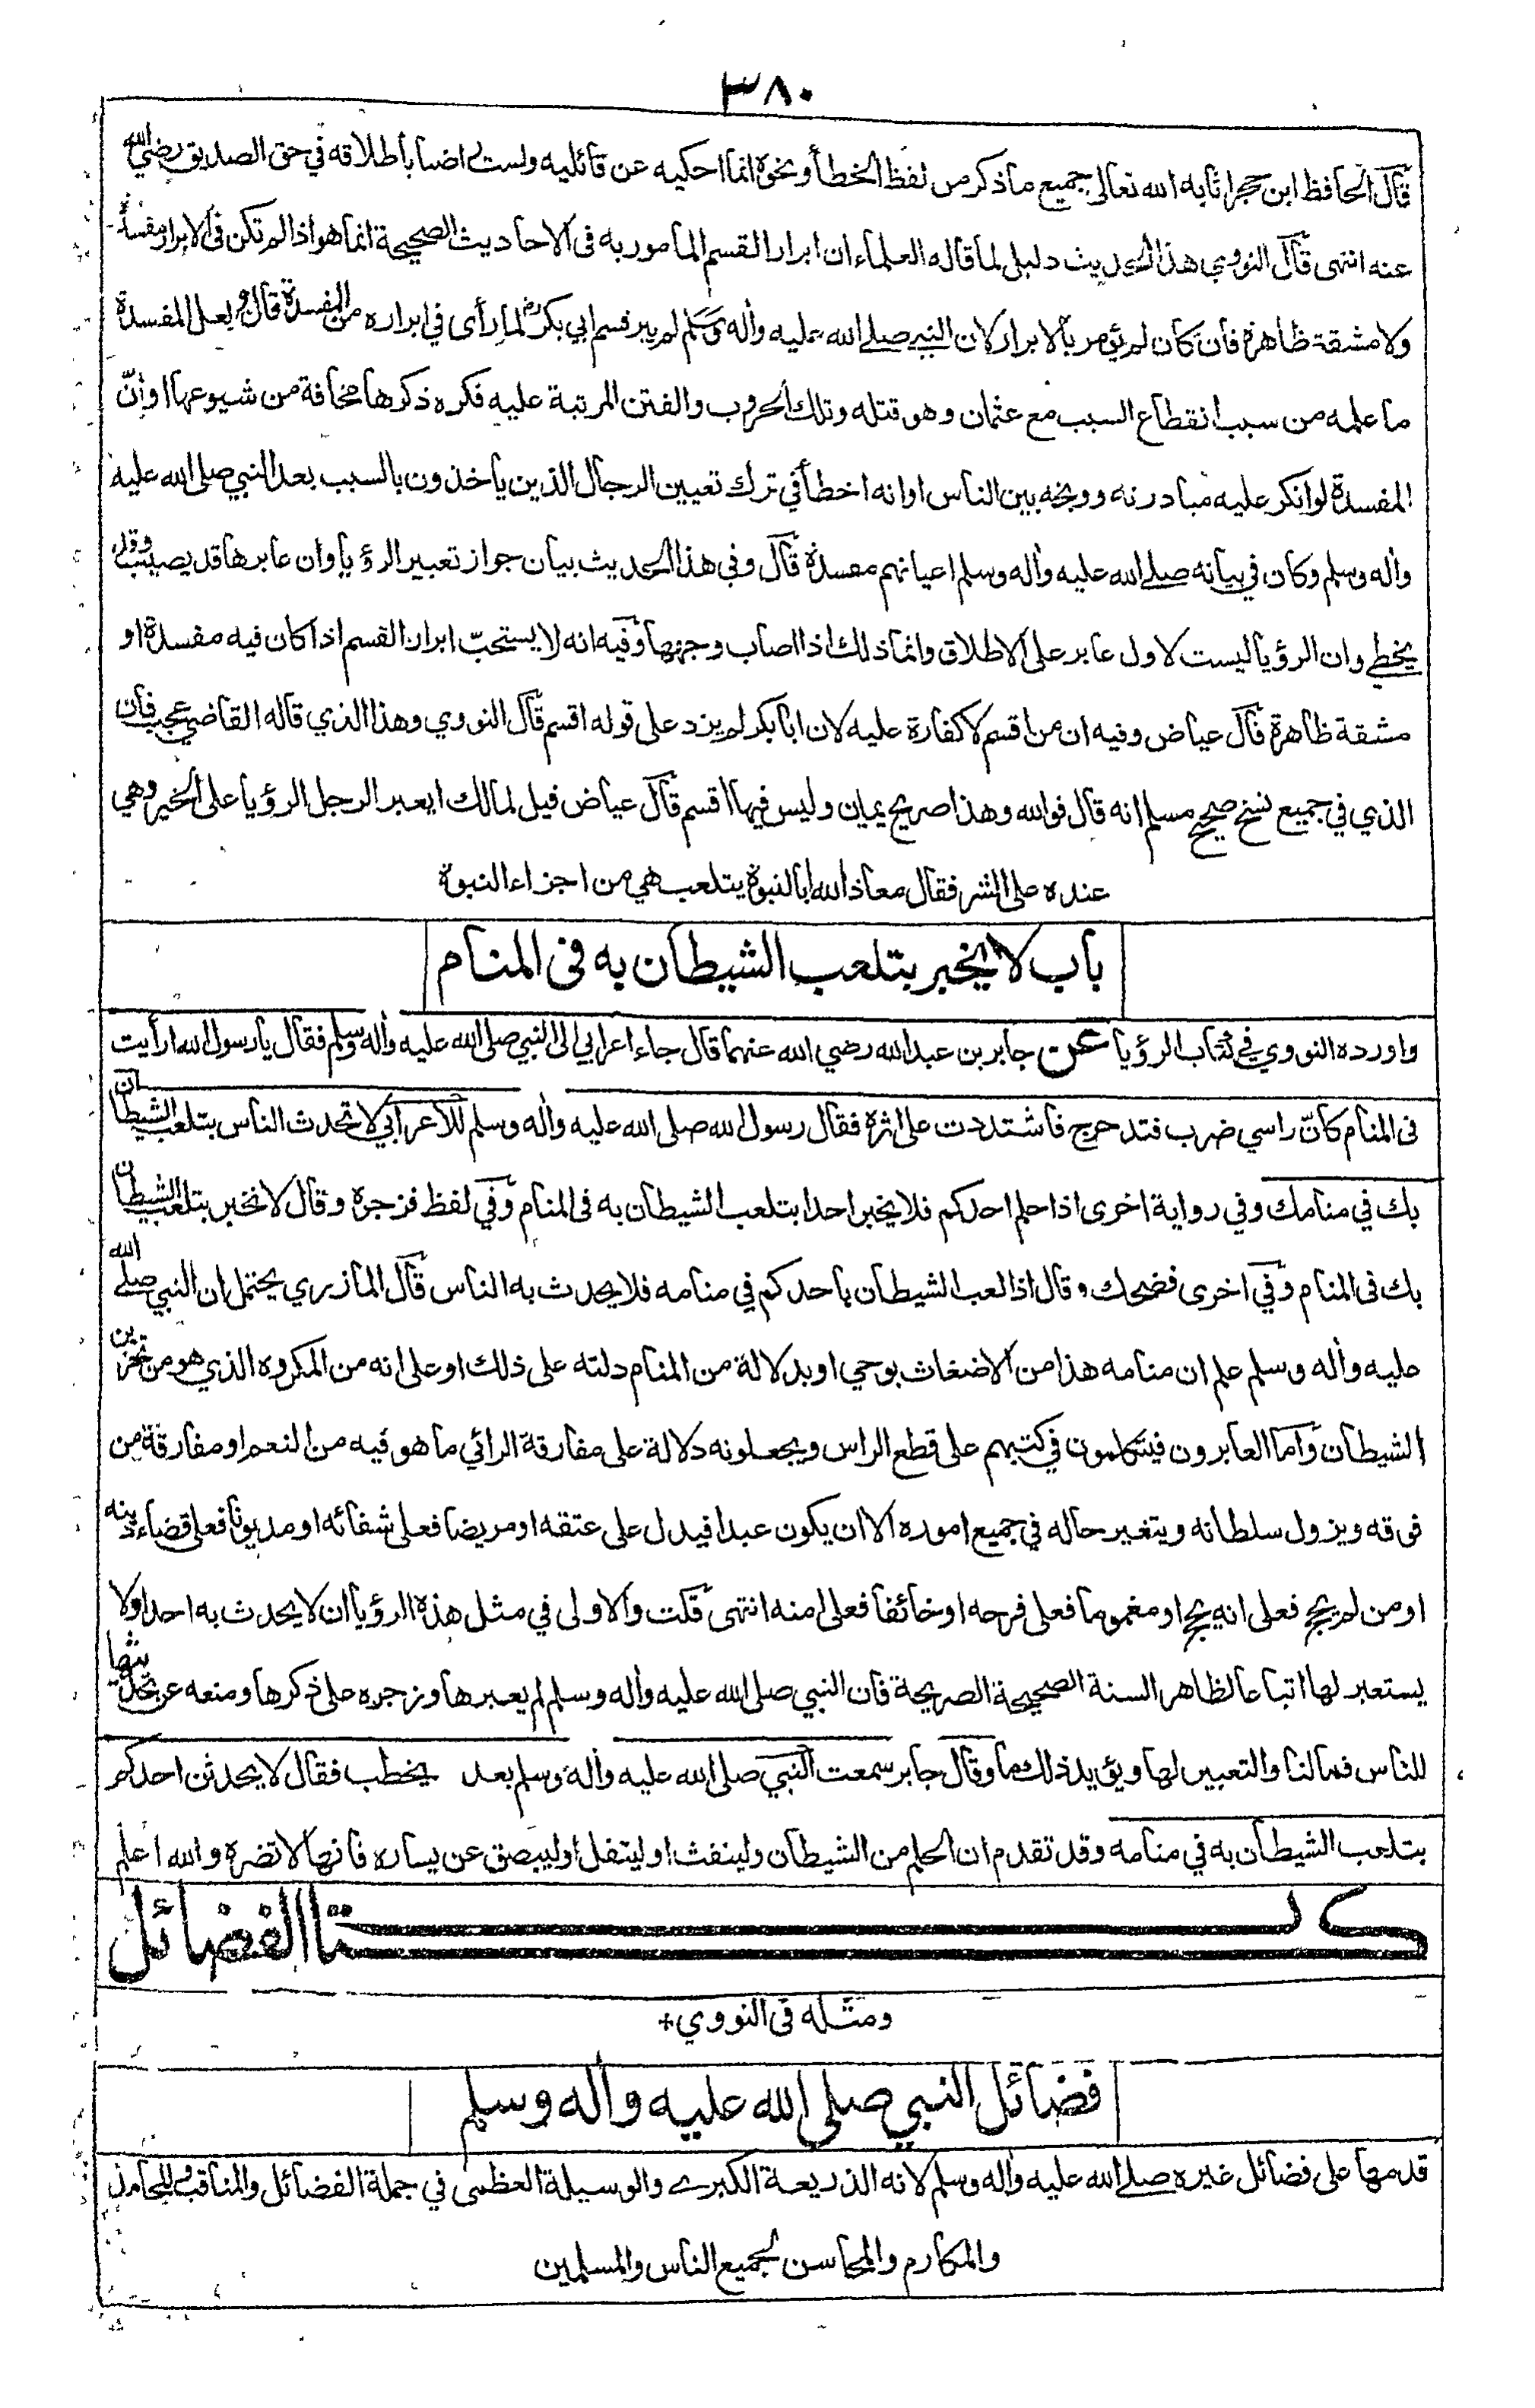 ٣٨٠
قال الحافظ ابن حجر اثابه الله تعالى جميع ما ذكر من لفظ الخطأ ونحوه انما احكيه عن قائليه ولست راضيا باطلاقه في حق الصديق رضي الله
عنه انتهى قال النووي هذا الحديث دليل لما قاله العلماء ان ابرار القسم المامور به في الاحاديث الصحيحة انما هو اذا لم تكن في الابرار مفسدة
ولا مشقة ظاهرة فان كان لم يؤمر بالابرار لان النبي صلى الله عليه وأله وسلم لم يبر قسم ابي بكر لما رأى في ابراره من المفسدة قال ولعل المفسدة
ما علمه من سبب انقطاع السبب مع عثمان وهو قتله وتلك الحروب والفتن المرتبة عليه فكره ذكرها مخافة من شيوعها او أنّ
المفسدة لو انكر عليه مبادرته ووبخه بين الناس او انه اخطأ في ترك تعيين الرجال الذين ياخذون بالسبب بعد النبي صلى الله عليه
وأله وسلم وكان في بيانه صلى الله عليه وأله وسلم اعيانهم مفسدة قال وفي هذا الحديث بيان جواز تعبير الرؤيا وان عابرها قد يصيب وقد
يخطي وان الرؤيا ليست لاول عابر على الاطلاق وانما ذلك اذا اصاب وجهها وفيه انه لا يستحبّ ابرار القسم اذا كان فيه مفسدة او
مشقة ظاهرة قال عياض وفيه ان من اقسم لا كفارة عليه لان ابا بكر لم يزد على قوله اقسم قال النووي وهذا الذي قاله القاضي عجيب فان
الذي في جميع نسخ صحيح مسلم انه قال فوالله وهذا صريح يمين وليس فيها اقسم قال عياض قيل لمالك ايعبر الرجل الرؤيا على الخير وهي
عنده على الشر فقال معاذ الله ابالنبوة يتلعب هي من اجزاء النبوة
باب لا يخبر بتلعب الشيطان به في المنام
واورده النووي في كتاب الرؤيا عن جابر بن عبد الله رضي الله عنهما قال جاء اعرابي الى النبي صلى الله عليه وأله وسلم فقال يا رسول الله ارأيت
في المنام كانّ راسي ضرب فتدحرج فاشتددت على اثره فقال رسول الله صلى الله عليه وأله وسلم للاعرابي لا تحدث الناس بتلعب الشيطان
بك في منامك وفي رواية اخرى اذا حلم احدكم فلا يخبر احدا بتلعب الشيطان به في المنام وفي لفظ فزجره وقال لا تخبر بتلعب الشيطان
بك في المنام وفي اخرى فضحك وقال اذا لعب الشيطان باحدكم في منامه فلا يحدث به الناس قال المازري يحتمل ان النبي صلى الله
عليه وأله وسلم علم ان منامه هذا من الاضغاث بوحي او بدلالة من المنام دلته على ذلك او على انه من المكروه الذي هو من تحزين
الشيطان واما العابرون فيتكلمون في كتبهم على قطع الراس ويجعلونه دلالة على مفارقة الرائي ما هو فيه من النعم او مفارقة من
فوقه ويزول سلطانه ويتغير حاله في جميع اموره الا ان يكون عبدا فيدل على عتقه او مريضا فعلى شفائه او مديونا فعلى قضاء دينه
او من لم يحج فعلى انه يحج او مغموما فعلى فرحه او خائفا فعلى امنه انتهى قلت والاولى في مثل هذه الرؤيا ان لا يحدث به احدا ولا
يستعبر لها اتباعا لظاهر السنة الصحيحة الصريحة فان النبي صلى الله عليه وأله وسلم لم يعبرها وزجره على ذكرها ومنعه عن تحديثها
للناس فما لنا والتعبير لها ويؤيد ذلك ما وقال جابر سمعت النبي صلى الله عليه وأله وسلم بعد يخطب فقال لا يحدثن احدكم
بتلعب الشيطان به في منامه وقد تقدم ان الحلم من الشيطان ولينفث او ليتفل او ليبصق عن يساره فانها لا تضره والله اعلم
كتاب الفضائل
ومثله في النووي+
فضائل النبي صلى الله عليه وأله وسلم
قدمها على فضائل غيره صلى الله عليه وأله وسلم لانه الذريعة الكبرى والوسيلة العظمى في جملة الفضائل والمناقب والمحامد
والمكارم والمحاسن لجميع الناس والمسلمين